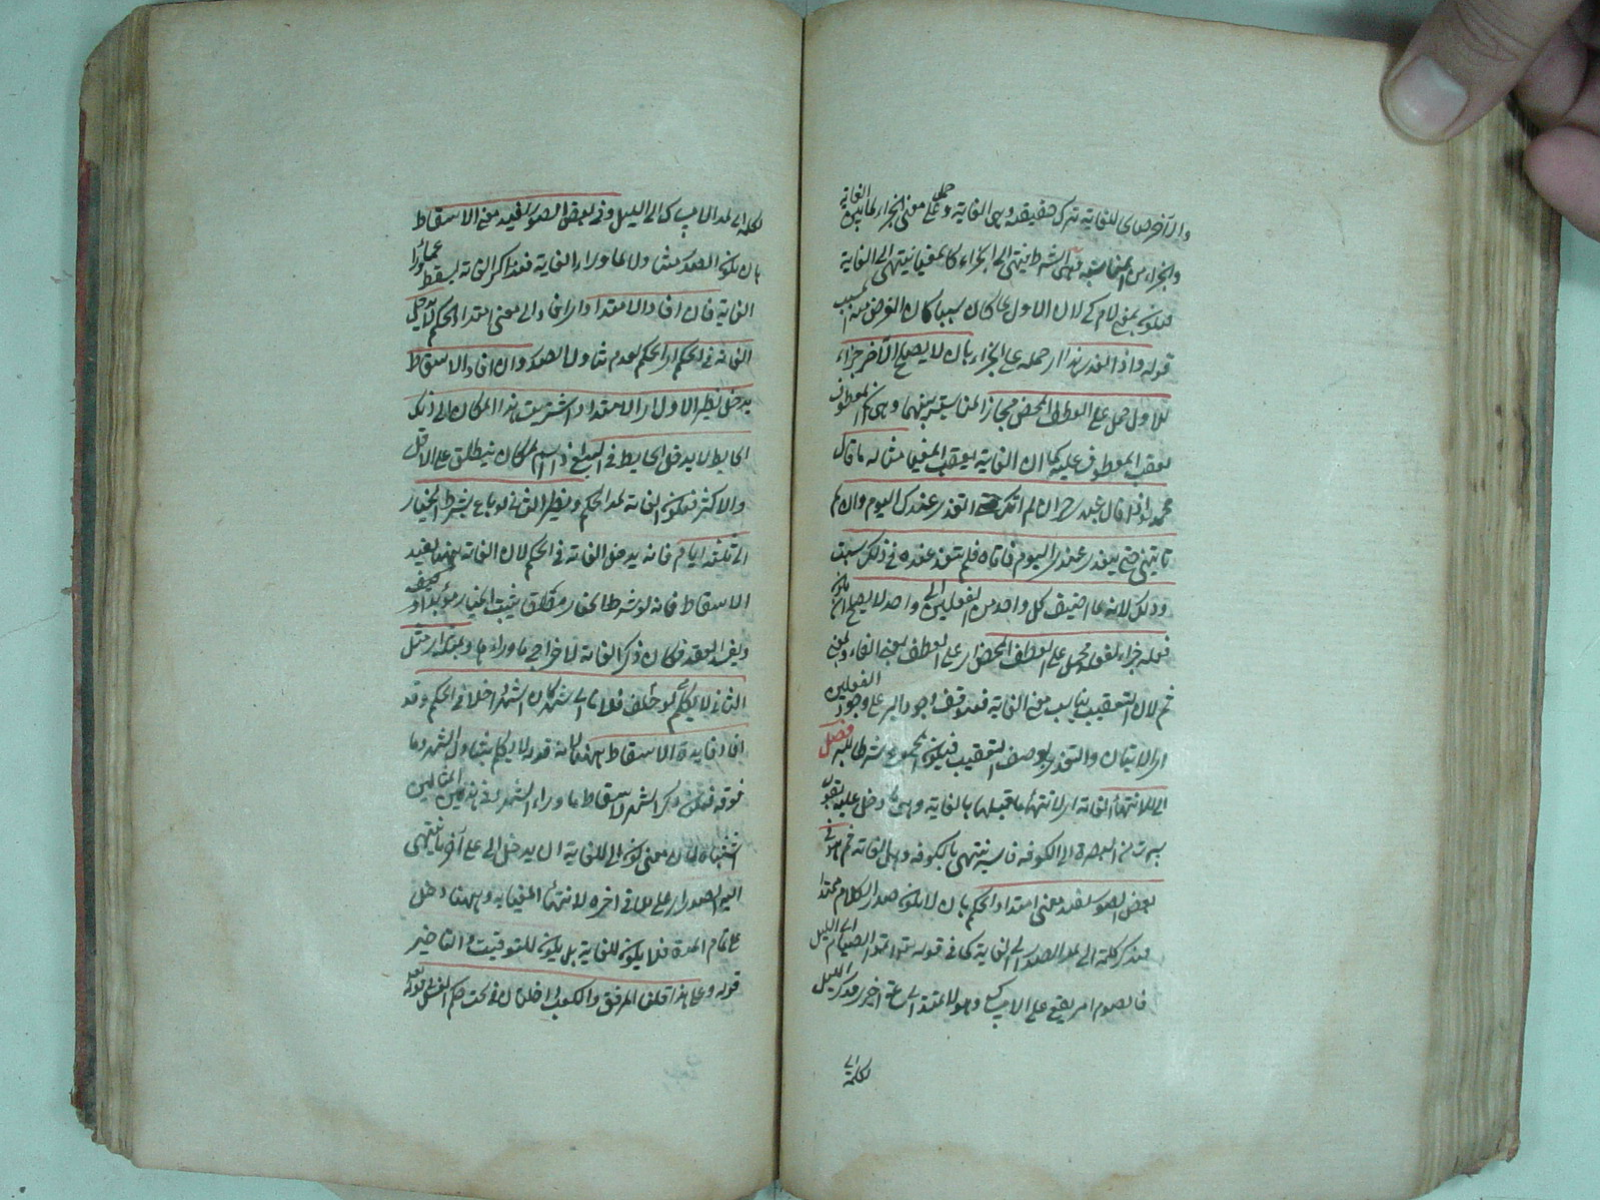 والآخر صالح للغاية تترك حقيقة وهى الغاية وحمل على معنى الجزاء لما بين الغاية
والجزاء من المناسبة فهى الشرط ينتهى الى الجزاء كما المغيا ينتهى الى الغاية
فيكون بمعنى لام كى لان الاول لما كان سببا كان الغرض منه المسبب
قوله واذا تعذر هذا اى حمله على الجزاء بان لا يصلح الآخر جزاء
للاول حمل على العطف المحض مجازا لمناسبة بينهما وهى ان المعطوف
يعقب المعطوف عليه كما ان الغاية يعقب المغيا مثاله ما قال
محمد اذا قال عبدى حر ان لم آتك حتى اتغدى عندك اليوم وان لم
تأتينى حتى تتغدى عندى اليوم فاتاه فلم يتغد عنده فى ذلك
وذلك لانه لما اضيف كل واحد من الفعلين الى واحد لا يصلح ان يكون
فعله جزاء لفعله فحمل على العطف المحض اى على العطف بمعنى الفاء وبمعنى
ثم لان التعقيب يناسب معنى الغاية فيتوقف وجود البر على وجود الفعلين
اى الاتيان والتغدى بوصف التعقيب فيكون المجموع شرطا للبر فصل
الى لانتهاء الغاية اى لانتهاء ما قبلها بالغاية وهى ما دخل عليه يقول
سرت من البصرة الى الكوفة فالسير ينتهى بالكوفة وهى الغاية ثم هو فى
بعض الصور يفيد معنى امتداد الحكم بان لا يكون صدر الكلام ممتدا
فيذكر كلمة الى لمد الصدر الى الغاية كما فى قوله ثم اتموا الصيام الى الليل
فالصوم امر يقع على الامساك وهو لا يمتد الى ساعة اخرى فذكر الليل
لكلمة الى
لكلمة الى لمد الامساك الى الليل وفى بعض الصور يفيد معنى الاسقاط
بان يكون الصدر متناولا لما وراء الغاية فذكر الغاية ليسقط عما وراء
الغاية فان افاد الامتداد اى ان افاد الى معنى امتداد الحكم لا يدخل
الغاية فى الحكم اى الحكم لعدم تناول الصدر وان افاد الاسقاط
يدخل نظير الاول اى الامتداد اشتريت هذا المكان الى ذلك
الحايط لا يدخل الحايط فى البيع اذ اسم المكان ينطلق على الاقل
والاكثر فيكون الغاية لمد الحكم ونظير الثانى لو باع بشرط الخيار
الى ثلثة ايام فانه يدخل الغاية فى الحكم لان الغاية ههنا يفيد
الاسقاط فانه لو شرط الخيار مطلقا يثبت الخيار مؤبدا
ويفسد العقد فكان ذكر الغاية لاخراج ما وراءها وبمثله اى مثل
الثانى لا يكلم لو حلف فلانا الى شهر كان الشهر داخلا فى الحكم وقد
افاد فايدة الاسقاط ههنا لانه قوله لا يكلم يتناول الشهر وما
فوقه فيكون ذكر الشهر لاسقاط ما وراء الشهر وفى هذين المثالين
اشتباه لان معنى كون الى للغاية ان يدخل الى على آخر ما ينتهى
اليه الصدر اى على ما فى اخره لانتهاء المغيا به وههنا دخل
على تمام المدة فلا يكون للغاية بل يكون للتوقيت والتاخير
قوله وعلى هذا قلنا المرفق والكعب داخلان تحت حكم الغسل فى قوله تعالى